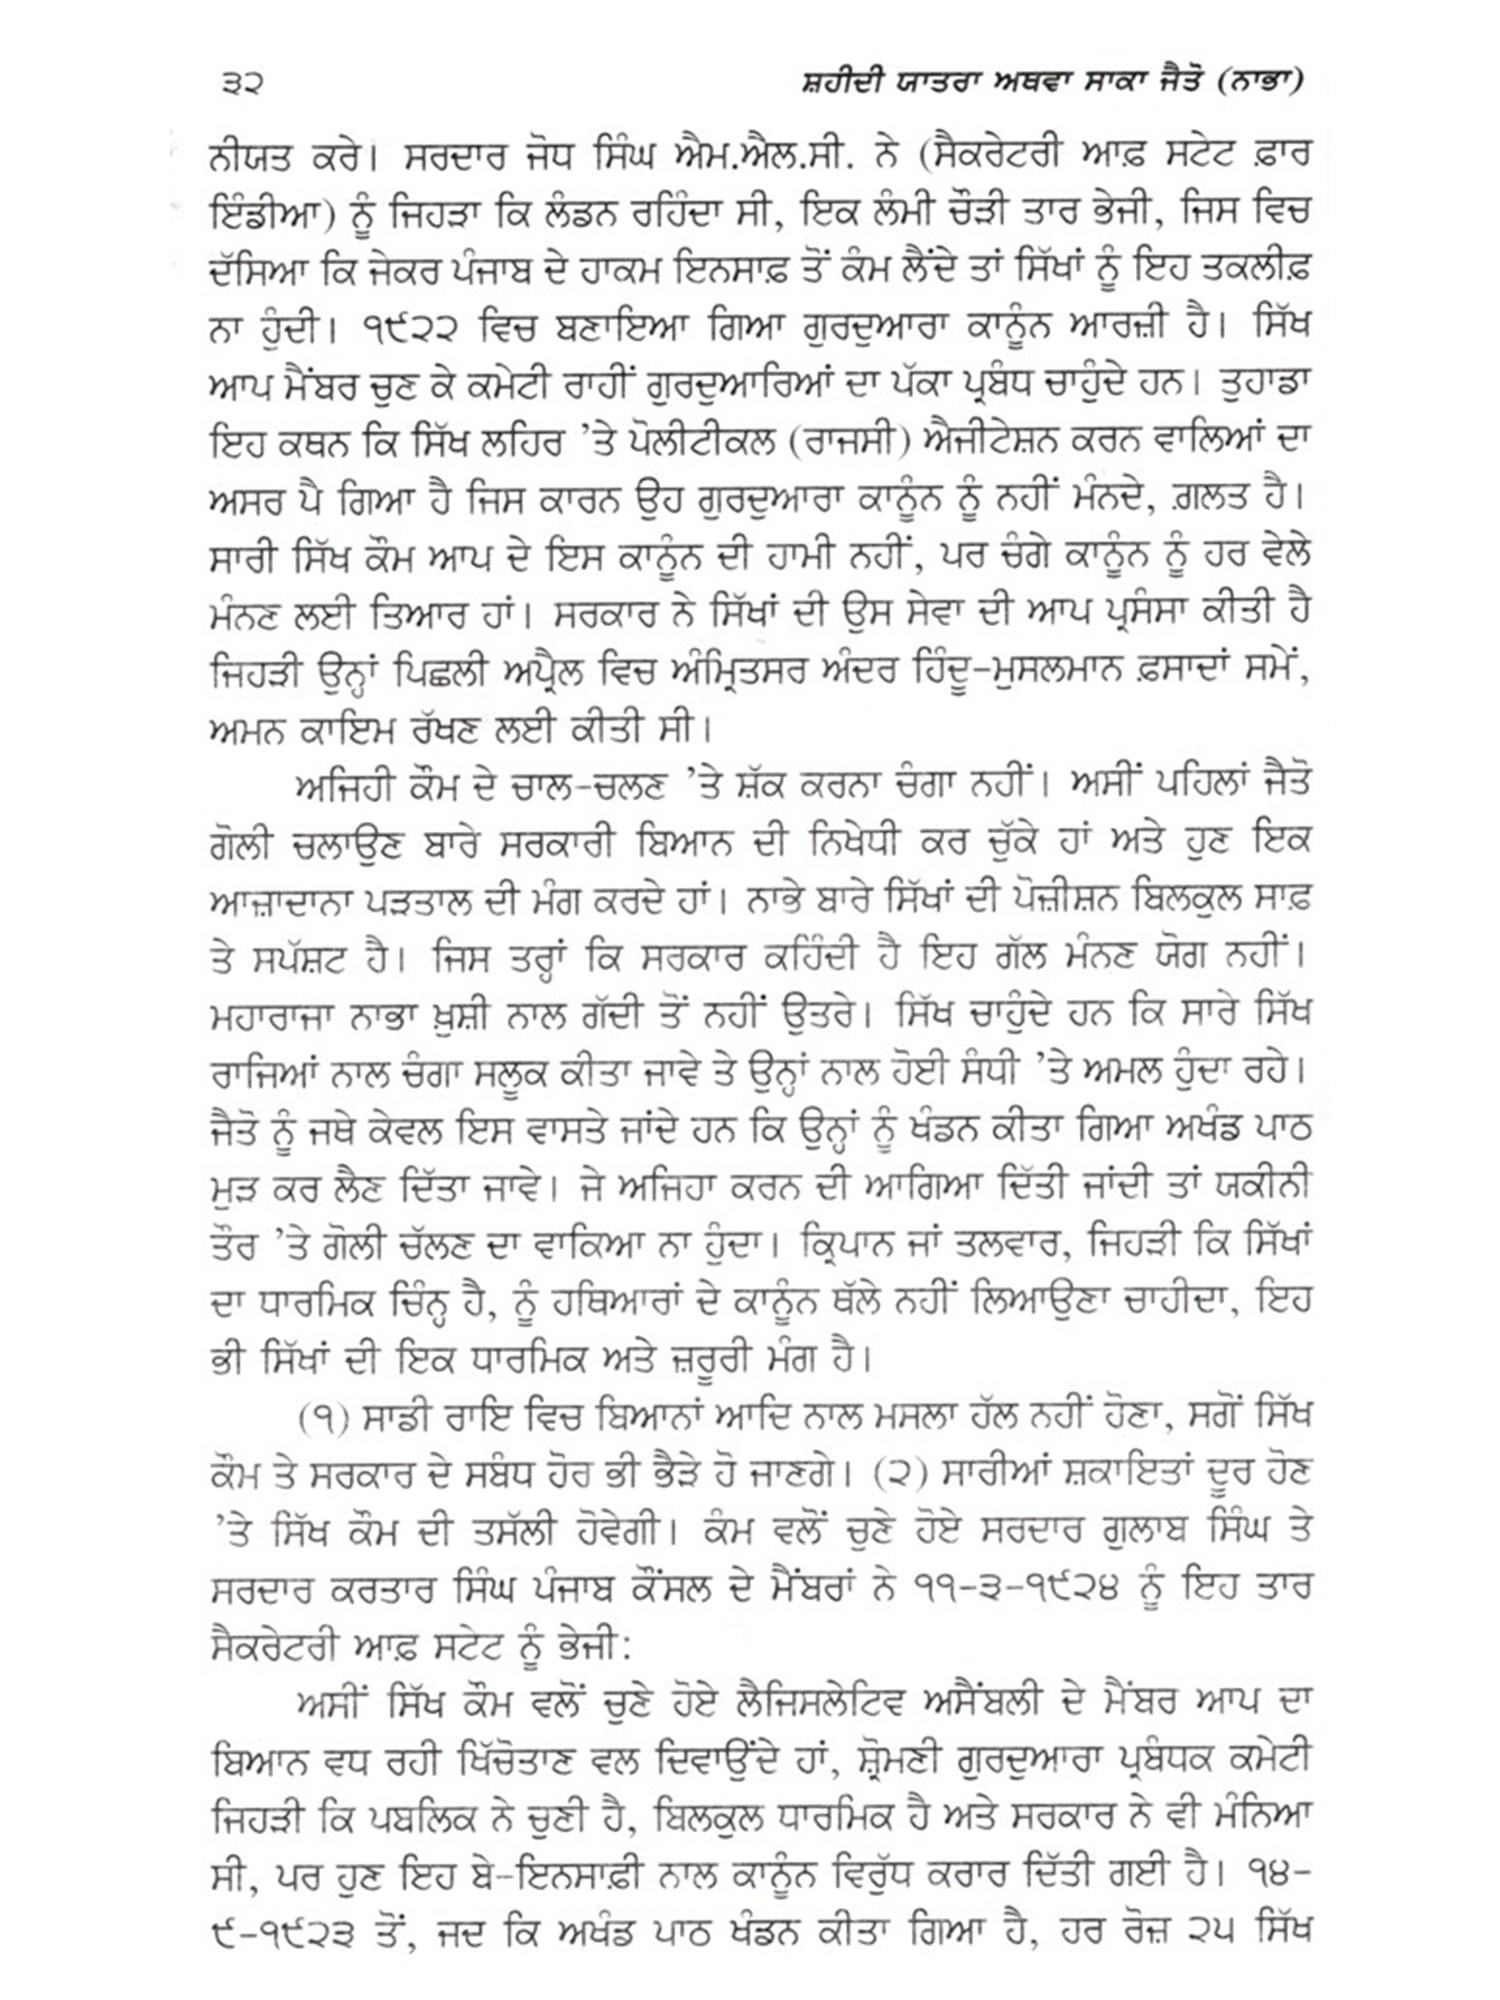 ੩੨
ਸ਼ਹੀਦੀ ਯਾਤਰਾ ਅਥਵਾ ਸਾਕਾ ਜੈਤੋ (ਨਾਭਾ)
ਨੀਯਤ ਕਰੇ। ਸਰਦਾਰ ਜੋਧ ਸਿੰਘ ਐਮ.ਐਲ.ਸੀ. ਨੇ (ਸੈਕਰੇਟਰੀ ਆਫ਼ ਸਟੇਟ ਫ਼ਾਰ
ਇੰਡੀਆ) ਨੂੰ ਜਿਹੜਾ ਕਿ ਲੰਡਨ ਰਹਿੰਦਾ ਸੀ, ਇਕ ਲੰਮੀ ਚੌੜੀ ਤਾਰ ਭੇਜੀ, ਜਿਸ ਵਿਚ
ਦੱਸਿਆ ਕਿ ਜੇਕਰ ਪੰਜਾਬ ਦੇ ਹਾਕਮ ਇਨਸਾਫ਼ ਤੋਂ ਕੰਮ ਲੈਂਦੇ ਤਾਂ ਸਿੱਖਾਂ ਨੂੰ ਇਹ ਤਕਲੀਫ਼
ਨਾ ਹੁੰਦੀ। ੧੯੨੨ ਵਿਚ ਬਣਾਇਆ ਗਿਆ ਗੁਰਦੁਆਰਾ ਕਾਨੂੰਨ ਆਰਜ਼ੀ ਹੈ। ਸਿੱਖ
ਆਪ ਮੈਂਬਰ ਚੁਣ ਕੇ ਕਮੇਟੀ ਰਾਹੀਂ ਗੁਰਦੁਆਰਿਆਂ ਦਾ ਪੱਕਾ ਪ੍ਰਬੰਧ ਚਾਹੁੰਦੇ ਹਨ। ਤੁਹਾਡਾ
ਇਹ ਕਥਨ ਕਿ ਸਿੱਖ ਲਹਿਰ ’ਤੇ ਪੋਲੀਟੀਕਲ (ਰਾਜਸੀ) ਐਜੀਟੇਸ਼ਨ ਕਰਨ ਵਾਲਿਆਂ ਦਾ
ਅਸਰ ਪੈ ਗਿਆ ਹੈ ਜਿਸ ਕਾਰਨ ਉਹ ਗੁਰਦੁਆਰਾ ਕਾਨੂੰਨ ਨੂੰ ਨਹੀਂ ਮੰਨਦੇ, ਗ਼ਲਤ ਹੈ।
ਸਾਰੀ ਸਿੱਖ ਕੌਮ ਆਪ ਦੇ ਇਸ ਕਾਨੂੰਨ ਦੀ ਹਾਮੀ ਨਹੀਂ, ਪਰ ਚੰਗੇ ਕਾਨੂੰਨ ਨੂੰ ਹਰ ਵੇਲੇ
ਮੰਨਣ ਲਈ ਤਿਆਰ ਹਾਂ। ਸਰਕਾਰ ਨੇ ਸਿੱਖਾਂ ਦੀ ਉਸ ਸੇਵਾ ਦੀ ਆਪ ਪ੍ਰਸੰਸਾ ਕੀਤੀ ਹੈ
ਜਿਹੜੀ ਉਨ੍ਹਾਂ ਪਿਛਲੀ ਅਪ੍ਰੈਲ ਵਿਚ ਅੰਮ੍ਰਿਤਸਰ ਅੰਦਰ ਹਿੰਦੂ-ਮੁਸਲਮਾਨ ਫ਼ਸਾਦਾਂ ਸਮੇਂ,
ਅਮਨ ਕਾਇਮ ਰੱਖਣ ਲਈ ਕੀਤੀ ਸੀ।
ਅਜਿਹੀ ਕੌਮ ਦੇ ਚਾਲ-ਚਲਣ ’ਤੇ ਸ਼ੱਕ ਕਰਨਾ ਚੰਗਾ ਨਹੀਂ। ਅਸੀਂ ਪਹਿਲਾਂ ਜੈਤੋ
ਗੋਲੀ ਚਲਾਉਣ ਬਾਰੇ ਸਰਕਾਰੀ ਬਿਆਨ ਦੀ ਨਿਖੇਧੀ ਕਰ ਚੁੱਕੇ ਹਾਂ ਅਤੇ ਹੁਣ ਇਕ
ਆਜ਼ਾਦਾਨਾ ਪੜਤਾਲ ਦੀ ਮੰਗ ਕਰਦੇ ਹਾਂ। ਨਾਭੇ ਬਾਰੇ ਸਿੱਖਾਂ ਦੀ ਪੋਜ਼ੀਸ਼ਨ ਬਿਲਕੁਲ ਸਾਫ਼
ਤੇ ਸਪੱਸ਼ਟ ਹੈ। ਜਿਸ ਤਰ੍ਹਾਂ ਕਿ ਸਰਕਾਰ ਕਹਿੰਦੀ ਹੈ ਇਹ ਗੱਲ ਮੰਨਣ ਯੋਗ ਨਹੀਂ।
ਮਹਾਰਾਜਾ ਨਾਭਾ ਖ਼ੁਸ਼ੀ ਨਾਲ ਗੱਦੀ ਤੋਂ ਨਹੀਂ ਉਤਰੇ। ਸਿੱਖ ਚਾਹੁੰਦੇ ਹਨ ਕਿ ਸਾਰੇ ਸਿੱਖ
ਰਾਜਿਆਂ ਨਾਲ ਚੰਗਾ ਸਲੂਕ ਕੀਤਾ ਜਾਵੇ ਤੇ ਉਨ੍ਹਾਂ ਨਾਲ ਹੋਈ ਸੰਧੀ ’ਤੇ ਅਮਲ ਹੁੰਦਾ ਰਹੇ।
ਜੈਤੋ ਨੂੰ ਜਥੇ ਕੇਵਲ ਇਸ ਵਾਸਤੇ ਜਾਂਦੇ ਹਨ ਕਿ ਉਨ੍ਹਾਂ ਨੂੰ ਖੰਡਨ ਕੀਤਾ ਗਿਆ ਅਖੰਡ ਪਾਠ
ਮੁੜ ਕਰ ਲੈਣ ਦਿੱਤਾ ਜਾਵੇ। ਜੇ ਅਜਿਹਾ ਕਰਨ ਦੀ ਆਗਿਆ ਦਿੱਤੀ ਜਾਂਦੀ ਤਾਂ ਯਕੀਨੀ
ਤੌਰ ’ਤੇ ਗੋਲੀ ਚੱਲਣ ਦਾ ਵਾਕਿਆ ਨਾ ਹੁੰਦਾ। ਕ੍ਰਿਪਾਨ ਜਾਂ ਤਲਵਾਰ, ਜਿਹੜੀ ਕਿ ਸਿੱਖਾਂ
ਦਾ ਧਾਰਮਿਕ ਚਿੰਨ੍ਹ ਹੈ, ਨੂੰ ਹਥਿਆਰਾਂ ਦੇ ਕਾਨੂੰਨ ਥੱਲੇ ਨਹੀਂ ਲਿਆਉਣਾ ਚਾਹੀਦਾ, ਇਹ
ਭੀ ਸਿੱਖਾਂ ਦੀ ਇਕ ਧਾਰਮਿਕ ਅਤੇ ਜ਼ਰੂਰੀ ਮੰਗ ਹੈ।
(੧) ਸਾਡੀ ਰਾਇ ਵਿਚ ਬਿਆਨਾਂ ਆਦਿ ਨਾਲ ਮਸਲਾ ਹੱਲ ਨਹੀਂ ਹੋਣਾ, ਸਗੋਂ ਸਿੱਖ
ਕੌਮ ਤੇ ਸਰਕਾਰ ਦੇ ਸਬੰਧ ਹੋਰ ਭੀ ਭੈੜੇ ਹੋ ਜਾਣਗੇ। (੨) ਸਾਰੀਆਂ ਸ਼ਕਾਇਤਾਂ ਦੂਰ ਹੋਣ
’ਤੇ ਸਿੱਖ ਕੌਮ ਦੀ ਤਸੱਲੀ ਹੋਵੇਗੀ। ਕੰਮ ਵਲੋਂ ਚੁਣੇ ਹੋਏ ਸਰਦਾਰ ਗੁਲਾਬ ਸਿੰਘ ਤੇ
ਸਰਦਾਰ ਕਰਤਾਰ ਸਿੰਘ ਪੰਜਾਬ ਕੌਂਸਲ ਦੇ ਮੈਂਬਰਾਂ ਨੇ ੧੧-੩-੧੯੨੪ ਨੂੰ ਇਹ ਤਾਰ
ਸੈਕਰੇਟਰੀ ਆਫ਼ ਸਟੇਟ ਨੂੰ ਭੇਜੀ:
ਅਸੀਂ ਸਿੱਖ ਕੌਮ ਵਲੋਂ ਚੁਣੇ ਹੋਏ ਲੈਜਿਸਲੇਟਿਵ ਅਸੈਂਬਲੀ ਦੇ ਮੈਂਬਰ ਆਪ ਦਾ
ਬਿਆਨ ਵਧ ਰਹੀ ਖਿੱਚੋਤਾਣ ਵਲ ਦਿਵਾਉਂਦੇ ਹਾਂ, ਸ਼੍ਰੋਮਣੀ ਗੁਰਦੁਆਰਾ ਪ੍ਰਬੰਧਕ ਕਮੇਟੀ
ਜਿਹੜੀ ਕਿ ਪਬਲਿਕ ਨੇ ਚੁਣੀ ਹੈ, ਬਿਲਕੁਲ ਧਾਰਮਿਕ ਹੈ ਅਤੇ ਸਰਕਾਰ ਨੇ ਵੀ ਮੰਨਿਆ
ਸੀ, ਪਰ ਹੁਣ ਇਹ ਬੇ-ਇਨਸਾਫ਼ੀ ਨਾਲ ਕਾਨੂੰਨ ਵਿਰੁੱਧ ਕਰਾਰ ਦਿੱਤੀ ਗਈ ਹੈ। ੧੪-
੯-੧੯੨੩ ਤੋਂ, ਜਦ ਕਿ ਅਖੰਡ ਪਾਠ ਖੰਡਨ ਕੀਤਾ ਗਿਆ ਹੈ, ਹਰ ਰੋਜ਼ ੨੫ ਸਿੱਖ